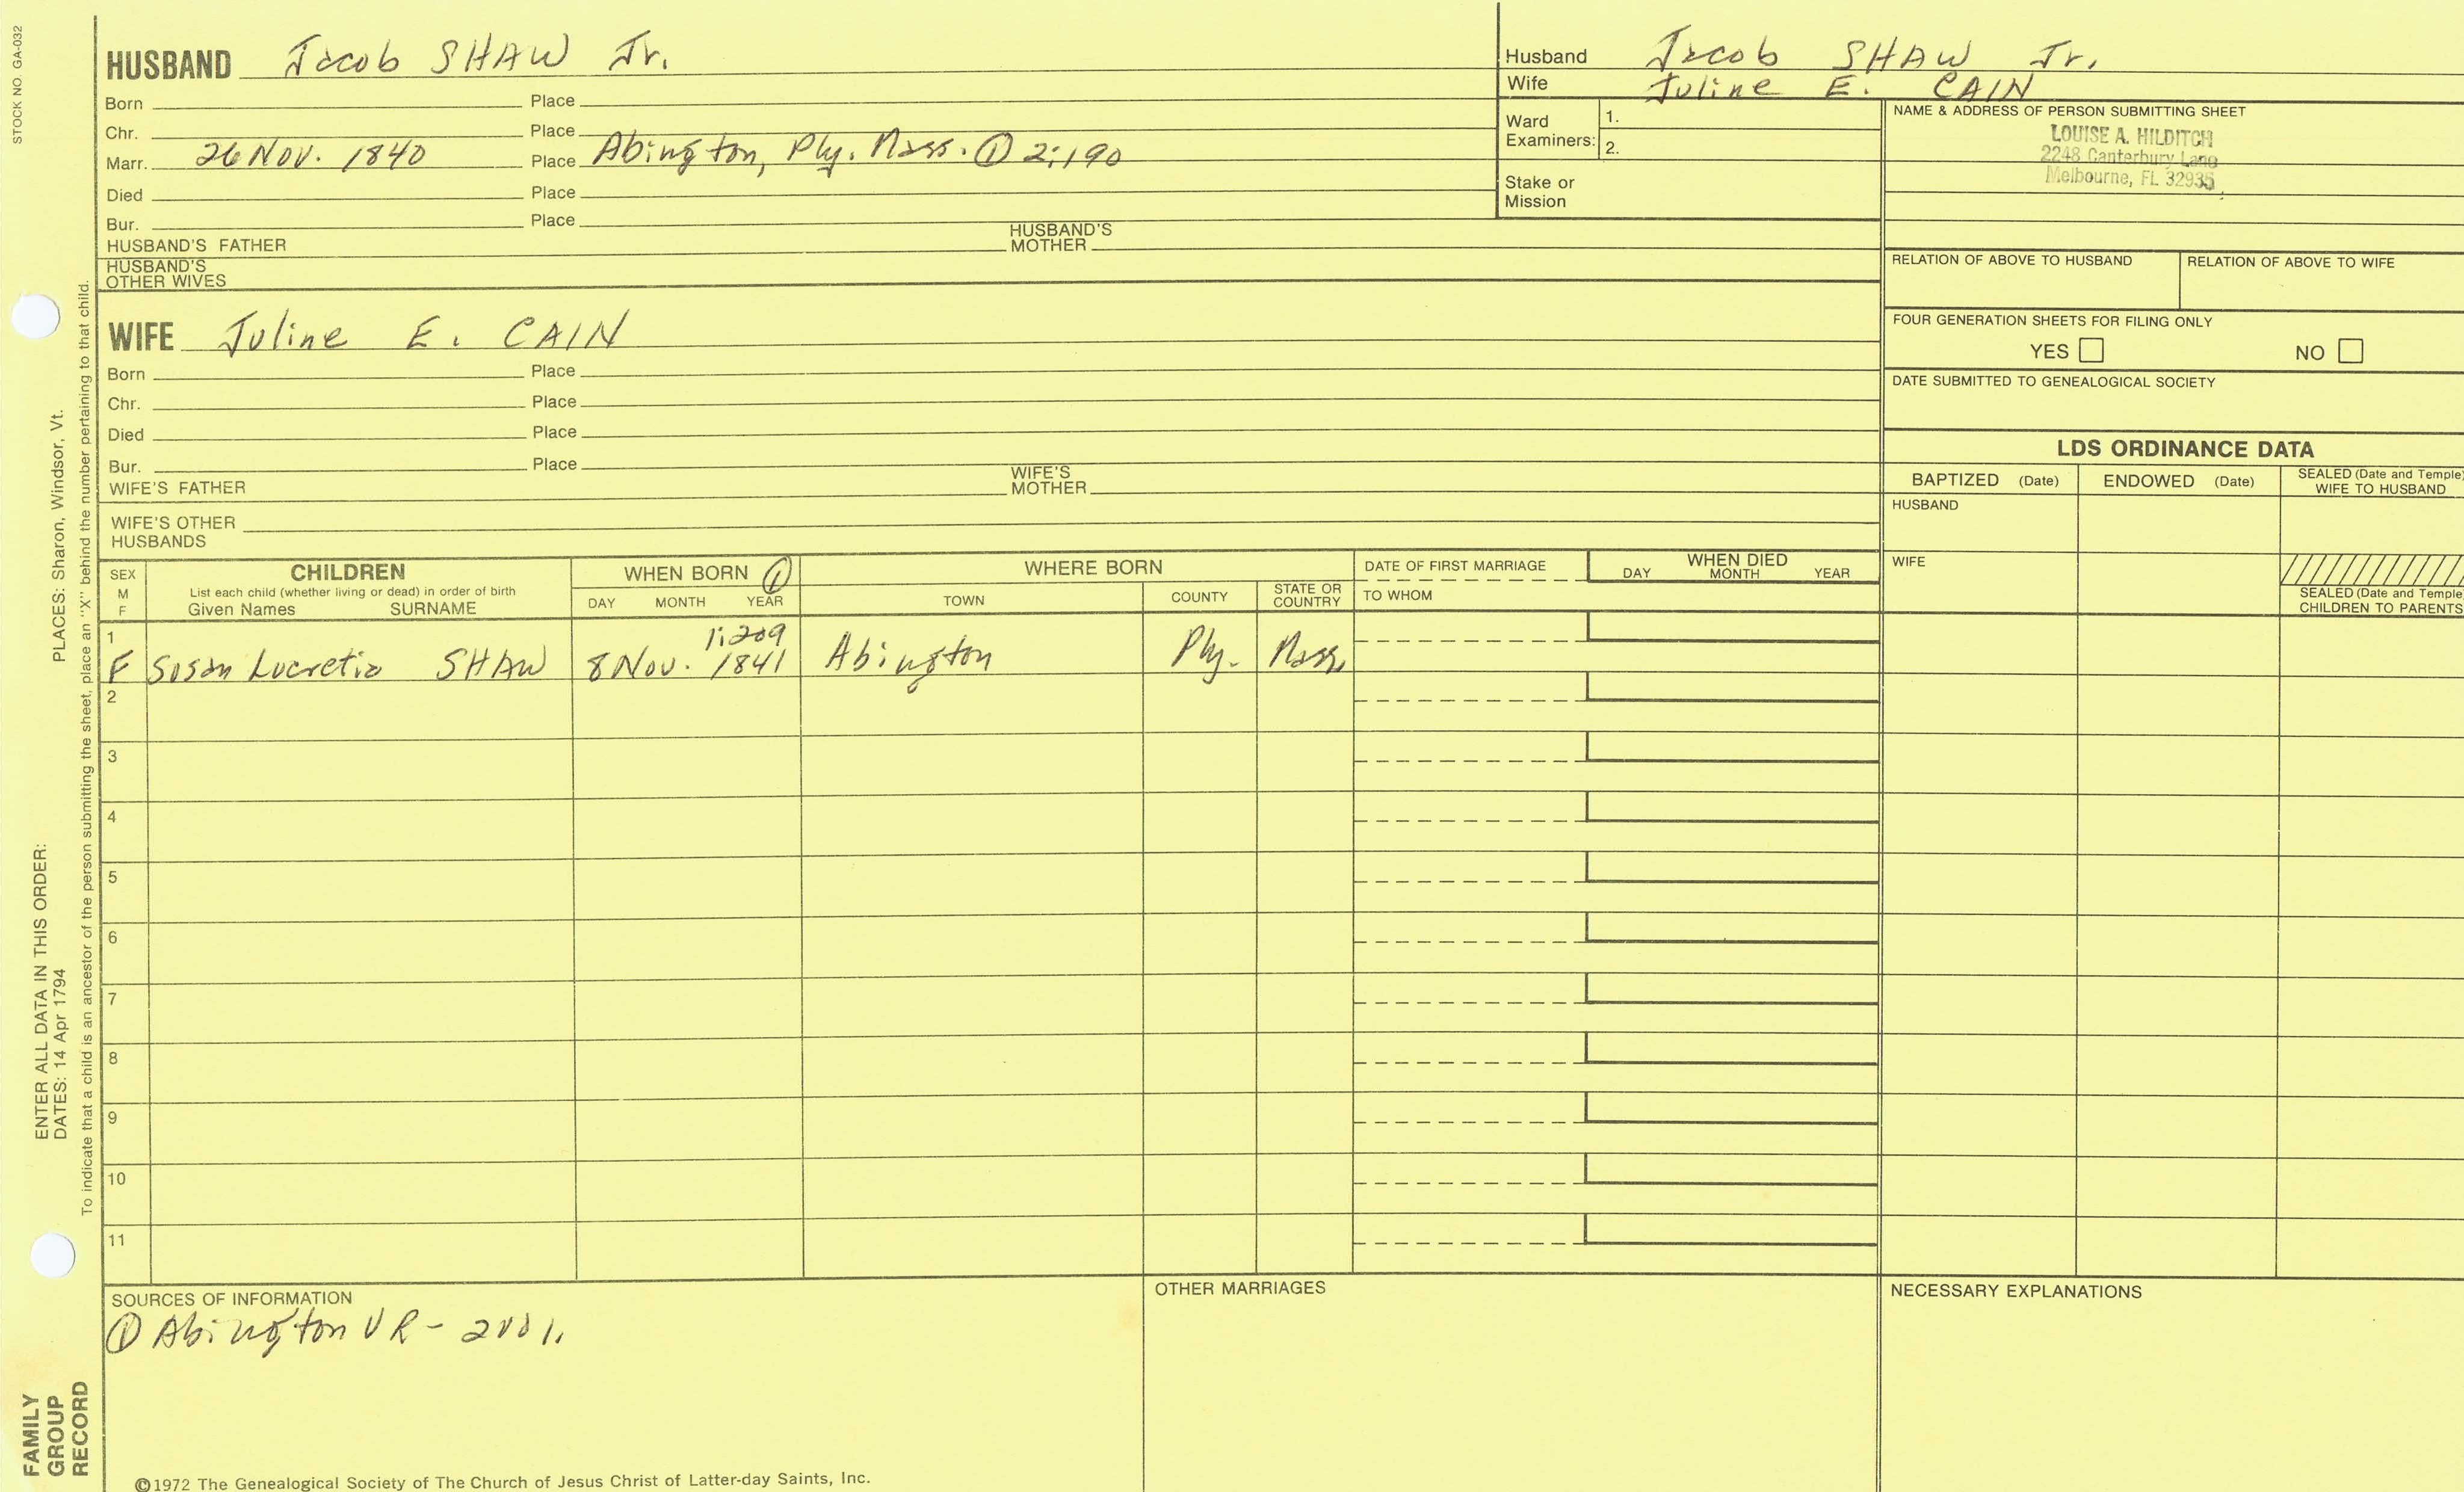 STOCK NO. GA-032
HUSBAND Jacob SHAW Jr.
Born Place
Chr. Place
Marr. 26 Nov. 1840 Place Abington, Ply. Mass. ① 2:190
Died Place
Bur. Place
HUSBAND'S FATHER HUSBAND'S MOTHER
HUSBAND'S OTHER WIVES
Husband Jacob SHAW Jr.
Wife Juline E. CAIN
Ward Examiners: 1.
2.
Stake or Mission
NAME & ADDRESS OF PERSON SUBMITTING SHEET
LOUISE A. HILDITCH
2248 Canterbury Lane
Melbourne, FL 32935
RELATION OF ABOVE TO HUSBAND RELATION OF ABOVE TO WIFE
FOUR GENERATION SHEETS FOR FILING ONLY
YES NO
DATE SUBMITTED TO GENEALOGICAL SOCIETY
WIFE Juline E. CAIN
Born Place
Chr. Place
Died Place
Bur. Place
WIFE'S FATHER WIFE'S MOTHER
WIFE'S OTHER HUSBANDS
LDS ORDINANCE DATA
BAPTIZED (Date) ENDOWED (Date) SEALED (Date and Temple) WIFE TO HUSBAND
HUSBAND
WIFE
SEALED (Date and Temple) CHILDREN TO PARENTS
SEX M F
CHILDREN
List each child (whether living or dead) in order of birth
Given Names SURNAME
WHEN BORN ①
DAY MONTH YEAR
WHERE BORN
TOWN COUNTY STATE OR COUNTRY
DATE OF FIRST MARRIAGE
TO WHOM
WHEN DIED
DAY MONTH YEAR
1 1:209
F Susan Lucretia SHAW 8 Nov. 1841 Abington Ply. Mass.
2
3
4
5
6
7
8
9
10
11
SOURCES OF INFORMATION
① Abington VR - 2 vol.
OTHER MARRIAGES
NECESSARY EXPLANATIONS
©1972 The Genealogical Society of The Church of Jesus Christ of Latter-day Saints, Inc.
ENTER ALL DATA IN THIS ORDER:
DATES: 14 Apr 1794 PLACES: Sharon, Windsor, Vt.
To indicate that a child is an ancestor of the person submitting the sheet, place an "X" behind the number pertaining to that child.
FAMILY
GROUP
RECORD